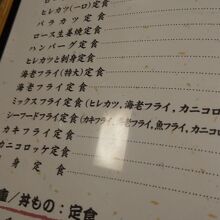 ヒレカツ(一口)定食
バラカツ定食
ロース生姜焼定食
ハンバーグ定食
ヒレカツと刺身定食
海老フライ(特大)定食
海老フライ定食
ミックスフライ定食(ヒレカツ,海老フライ,カニコロ
シーフードフライ定食(カキフライ,海老フライ,魚フライ,カニコロ
カキフライ定食
カニコロッケ定食
身定食
/丼もの:定食